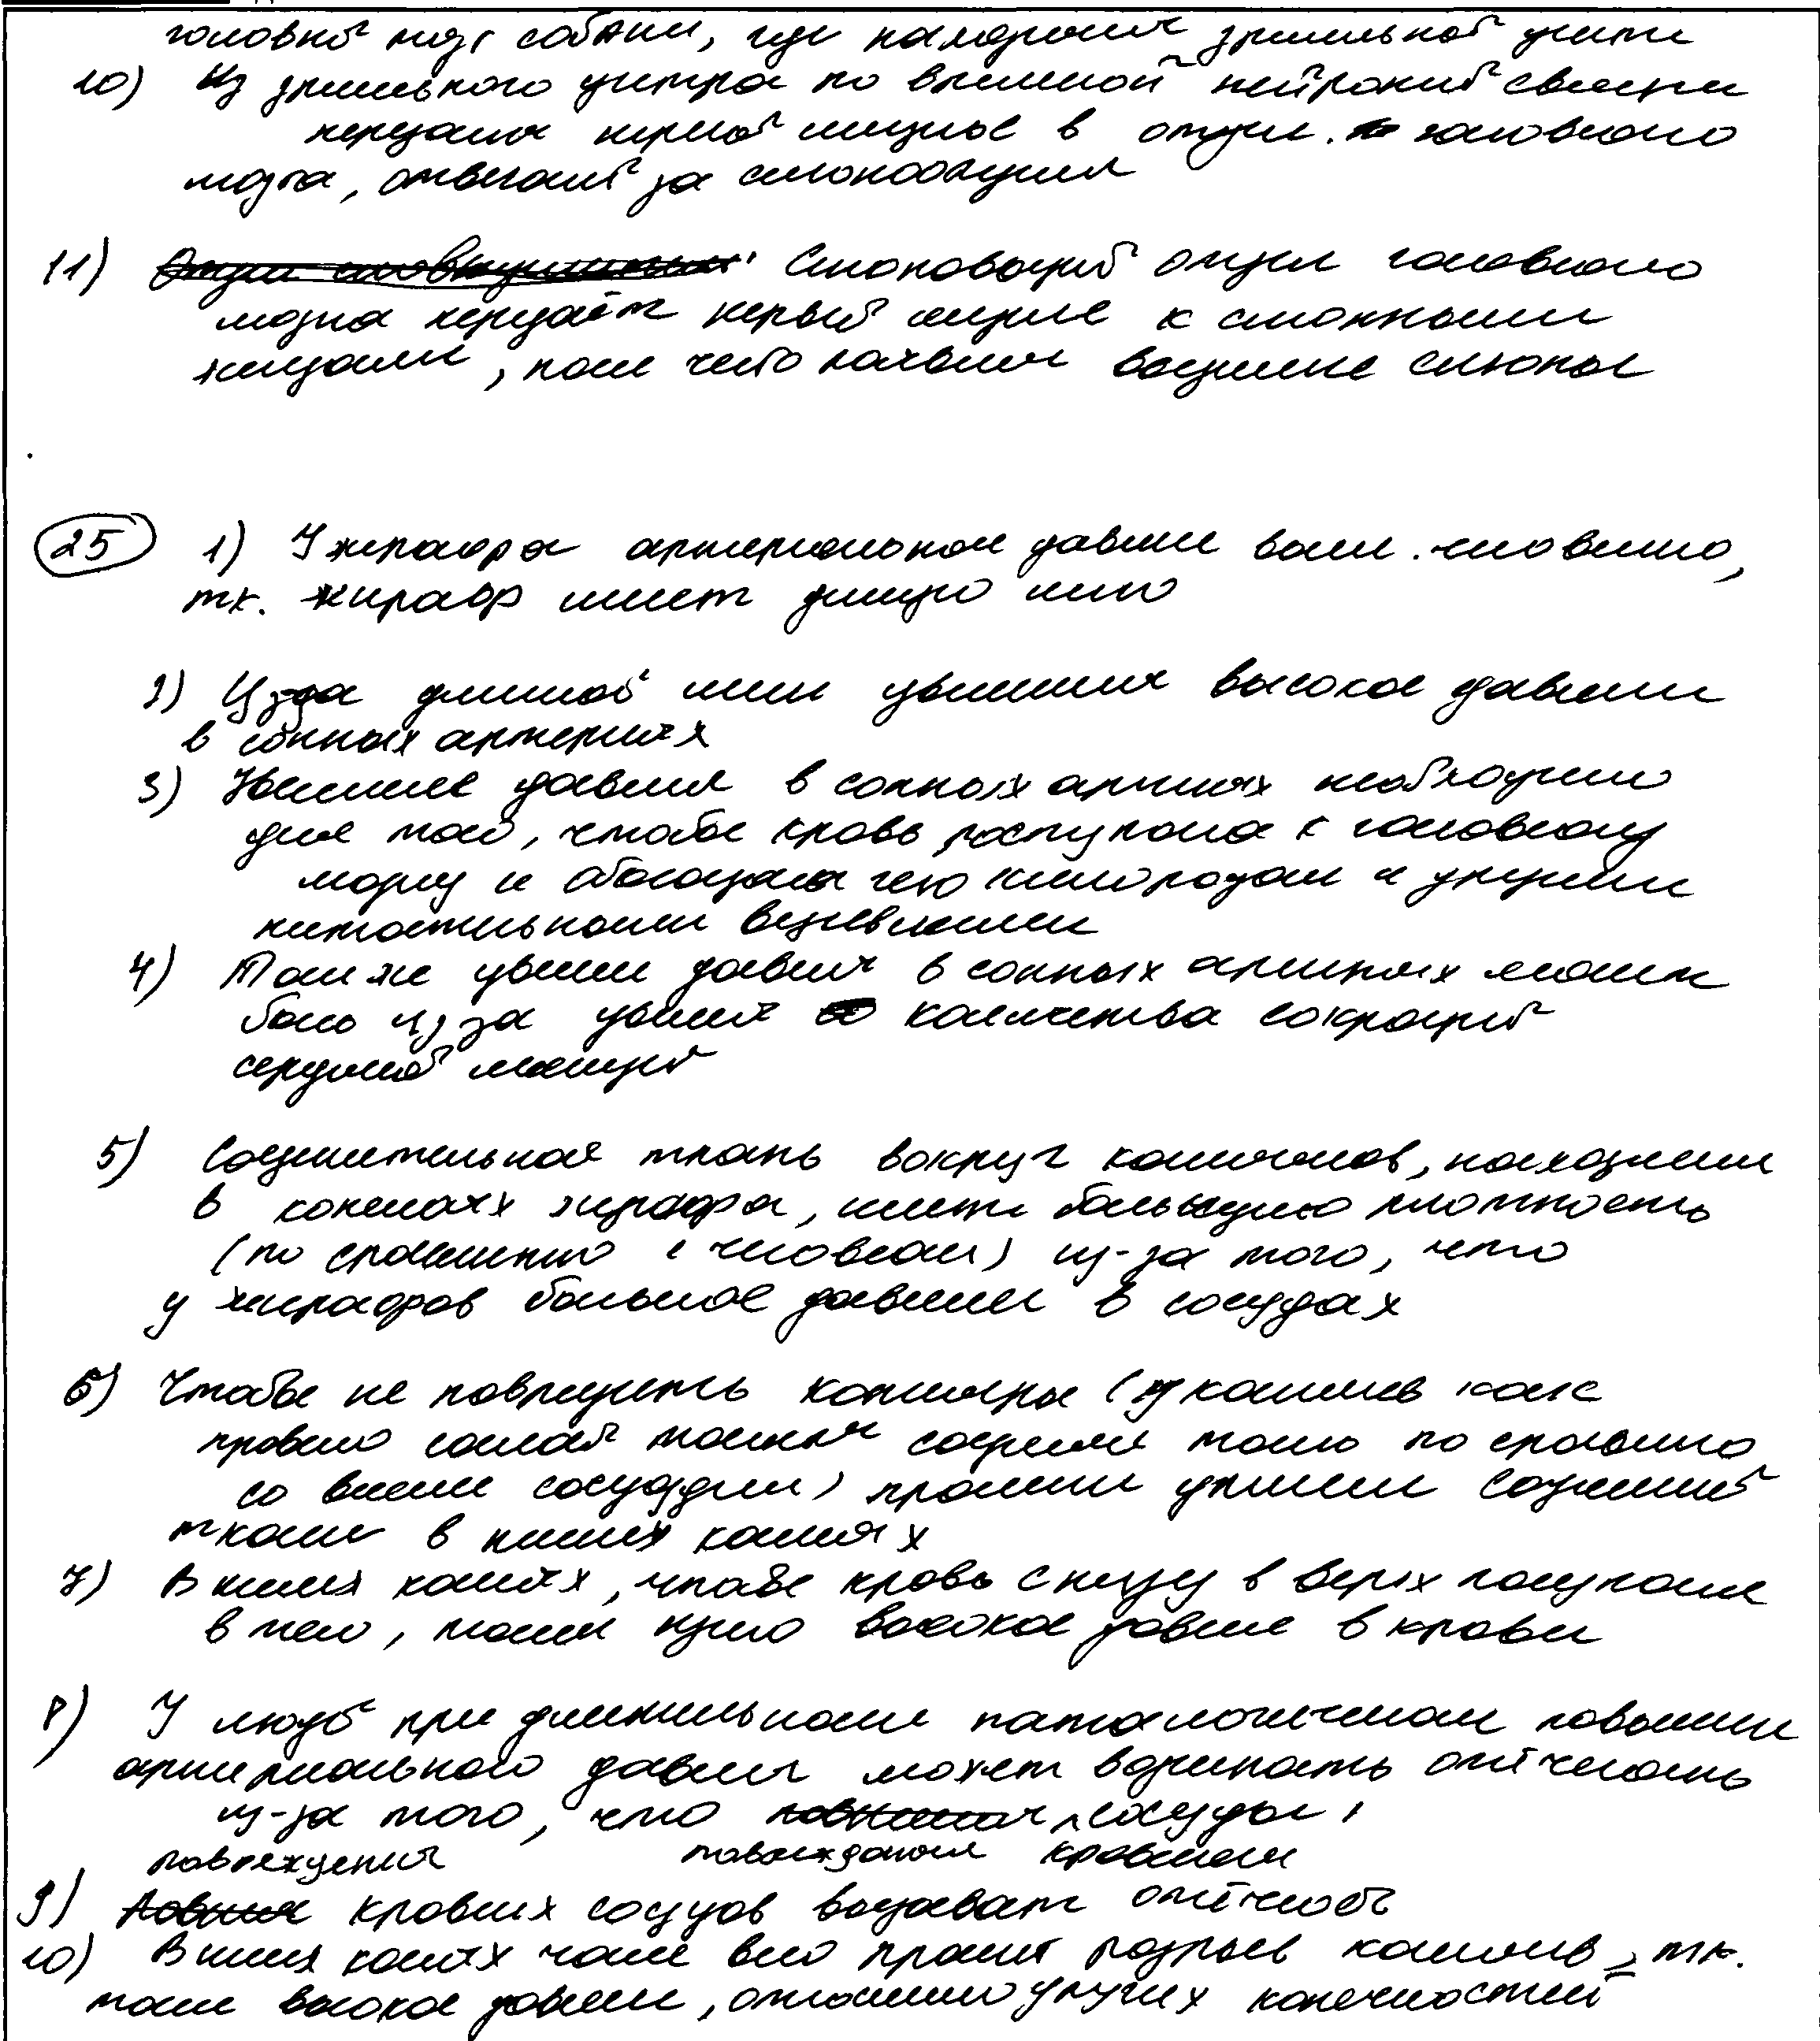 головной мозг собаки, где находится зрительной
10) Из зрительного центра по временной нейронной
передаётся нервный импульс в отдел головного
мозга, отвечающий за слюноотделения
11) отдел головного
мозга передаёт нервный импульс к слюнным
железам, после чего начинается выделение слюны
25 1) У жирафа артериальное давление выше человечного,
т.к. жираф имеет длинную шею
2) Из за длинной шеи увеличился высокое давление
в сонных артериях
3) Увеличение давления в сонных артериях необходимо
для того, чтобы кровь поступала к головному
мозгу и обогащала его кислородом и другими
питательными веществами
4) Также увеличение давления в сонных артериях может
быть из за увеличения количества сокращений
сердечной мышцы
5) Соединительная ткань вокруг капилляров, находящихся
в конечностях жирафа, имеет большую плотность
(по сравнению с человеком) из-за того, что
у жирафов большое давление в сосудах
6) Чтобы не повредить капилляры (у капилляров как
правило самая тонкая соединительная ткань по сравнению
со всеми сосудами)
ткани в нижних конечностях
7) В нижних конечностях, чтобы кровь снизу в верх поступала
в тело, также нужно высокое давление в крови
8) У людей при длительном патологическом повышении
артериального давления может возникать отёчность
из-за того, что сосуды
повреждения повреждаются кровеносные
9) кровеносных сосудов вызывает отёчность
10) В нижних конечностях чаще всего происходит разрыв капилляров, т.к.
там высокое давление, относительно других конечностей